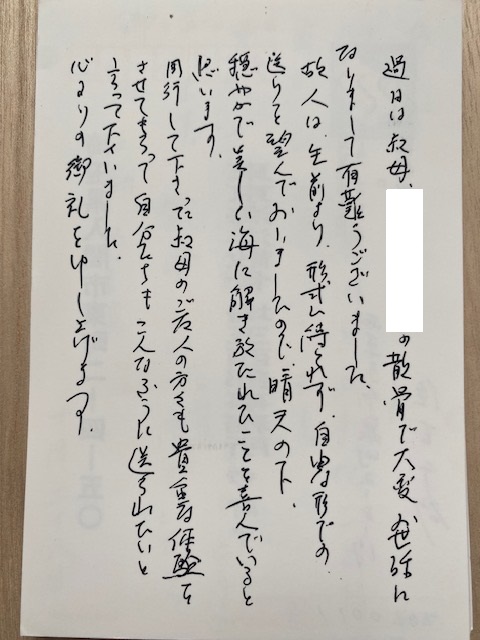 過日は叔母、
の散骨で大変お世話に
なりまして有難うございました。
故人は、生前より、形式に縛られず、自由な形での
送りを望んでおりましたので、晴天の下、
穏やかで美しい海に解き放たれたことを喜んでいると
思います。
同行して下さった叔母のご友人の方々も貴重な体験を
させてもらって自分たちもこんなふうに送られたいと
言って下さいました。
心よりの御礼を申し上げます。